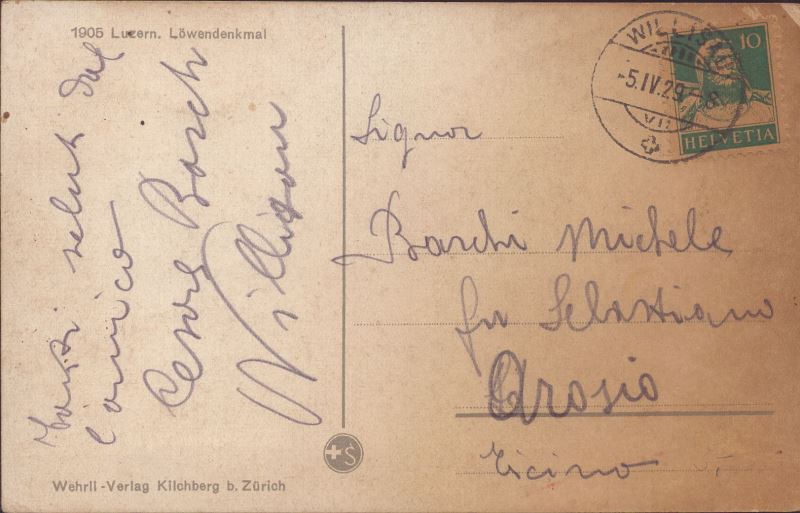 1905 Luzern. Löwendenkmal
saluti dal
l'amico
Cesare Boschi
Willisau
Wehrli-Verlag Kilchberg b. Zürich
S
WILLISAU
-5.IV.29.
10
HELVETIA
Signor
Boschi Michele
fu Sebastiano
Arosio
Ticino